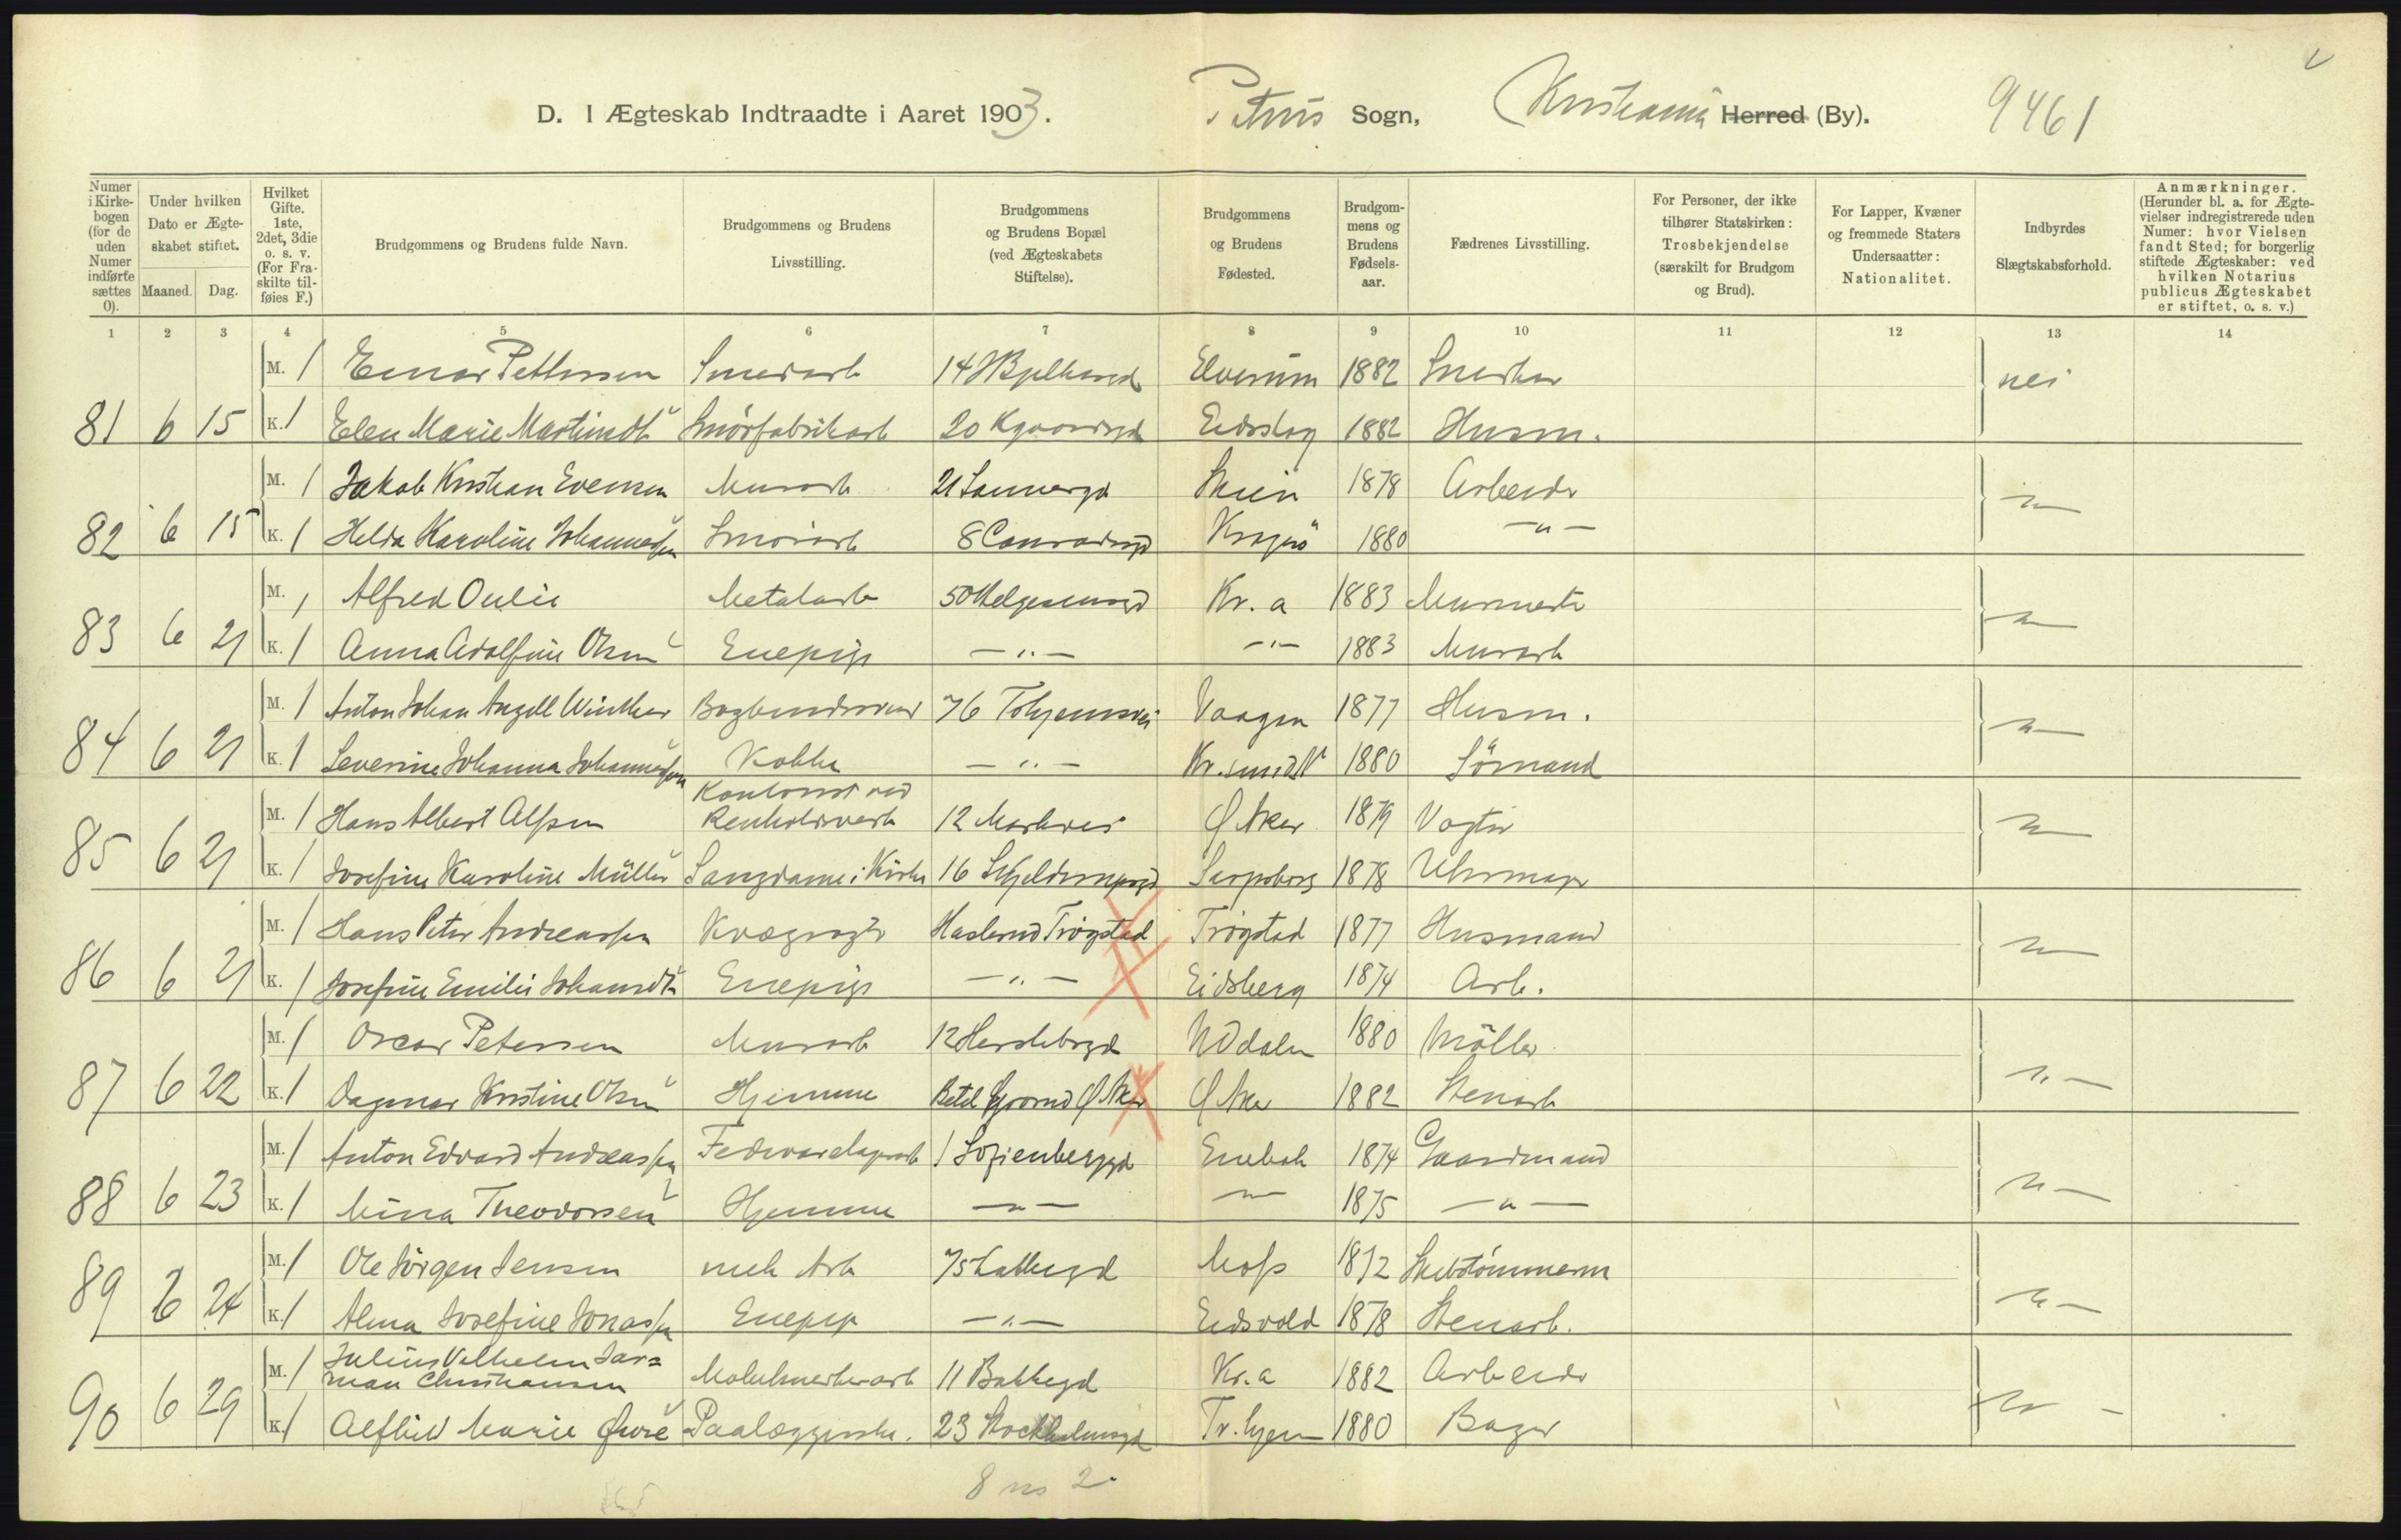 D. I Ægteskab Indtraadte i Aaret 1903. Petrus Sogn, Kristiania Herred (By). 9461
Numer i Kirkebogen (for de uden Numer indførte sættes 0).
Under hvilken Dato er Ægteskabet stiftet.
Maaned. Dag.
Hvilket Gifte. 1ste, 2det, 3die o. s. v. (For Fraskilte tilføies F.)
Brudgommens og Brudens fulde Navn.
Brudgommens og Brudens Livsstilling.
Brudgommens og Brudens Bopæl (ved Ægteskabets Stiftelse).
Brudgommens og Brudens Fødested.
Brudgommens og Brudens Fødselsaar.
Fædrenes Livsstilling.
For Personer, der ikke tilhører Statskirken: Trosbekjendelse (særskilt for Brudgom og Brud).
For Lapper, Kvæner og fremmede Staters Undersaatter: Nationalitet.
Indbyrdes Slægtskabsforhold.
Anmærkninger. (Herunder bl. a. for Ægtevielser indregistrerede uden Numer: hvor Vielsen fandt Sted; for borgerlig stiftede Ægteskaber: ved hvilken Notarius publicus Ægteskabet er stiftet, o. s. v.)
1 2 3 4 5 6 7 8 9 10 11 12 13 14
M. 1 Einar Pettersen Smedarb Elverum 1882 Snedker nei
81 6 15 K. 1 Elen Marie Martinsdt Smörfabrikarb 20 Eidskog 1882 Husm.
M. 1 Jakob Kristian Evensen Murarb 21 Sannergd Skien 1878 Arbeider
82 6 15 K. 1 Helda Karoline Johannesen 8 Conradsgd Kragerö 1880 -"-
M. 1 Alfred Oulie Metalarb 50 Helgesensgd Kr.a 1883 Murmester
83 6 21 K. 1 Anna Adolfine Olsen Enepige -"- -"- 1883 Murarb
M. 1 Anton Johan Angell Winther Bogbindersvend 76 Vaagen 1877 Husm.
84 6 21 K. 1 Severine Johanna Johannesen Kokke -"- Kr.sund N 1880 Sömand
Kontorist ved
M. 1 Hans Albert Alfsen Renholdsverk 12 Markvei Ø Aker 1879 Vogter
85 6 21 K. 1 Josefine Karoline Müller Sangdame i Kirke 16 Sarpsborg 1878 Uhrmager
M. 1 Hans Peter Andreassen Kvægrøgter Haslerud Trøgstad Trøgstad 1877 Husmand
86 6 21 K. 1 Josefine Emilie Johansdt Enepige -"- Eidsberg 1874 Arb.
M. 1 Oscar Petersen Murarb 12 Herslebsgd N Odalen 1880 Möller
87 6 22 K. 1 Dagmar Kristine Olsen Hjemme Betel Ø Aker Ø Aker 1882 Stenarb
M. 1 Anton Edvard Andreassen 1 Sofienberggd Enebak 1874 Gaardmand
88 6 23 K. 1 Mina Theodorsen Hjemme -"- -"- 1875 -"-
M. 1 Ole Jörgen Jensen mek Arb 75 Moss 1872 Skibstömmerm
89 6 24 K. 1 Alma Josefine Jonassen Enepige -"- Eidsvold 1878 Stenarb.
Julius Vilhelm Har=
M. 1 man Christiansen 11 Bakkegd Kr.a 1882 Arbeider
90 6 29 K. 1 Alfhild Marie Paalæggerske. 23 Stockholmsgd Tr.hjem 1880 Bager